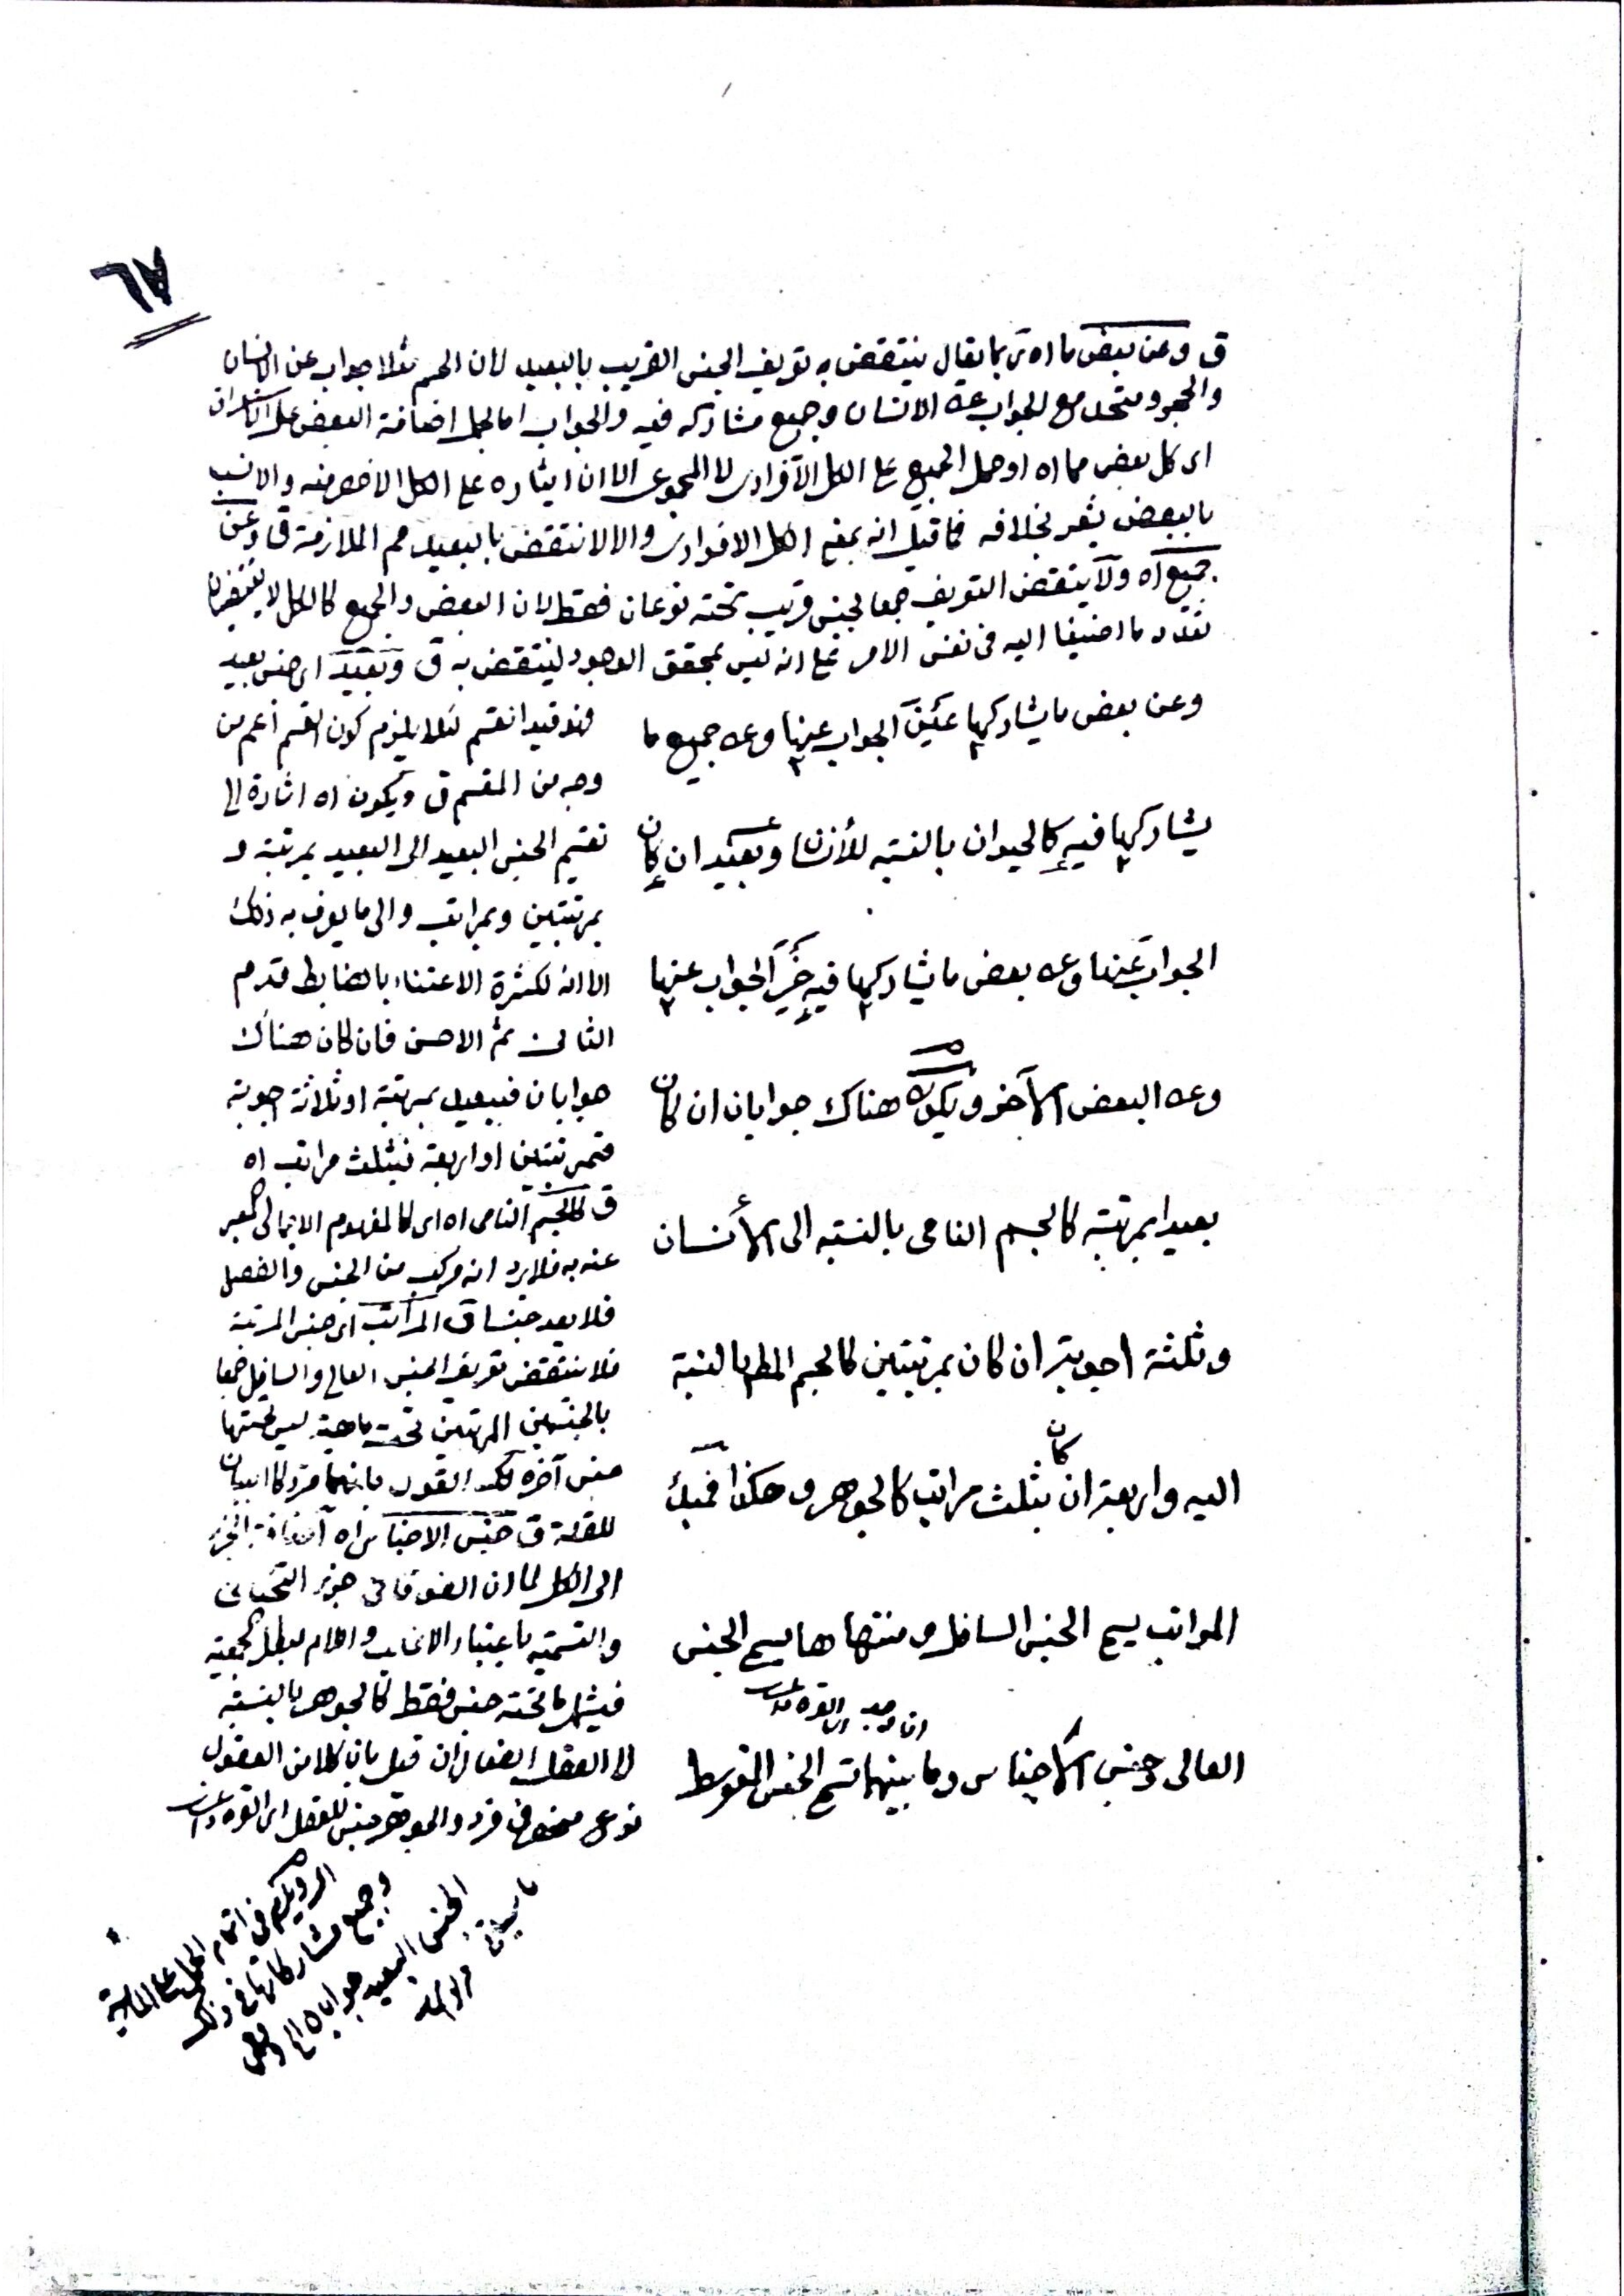 ٦٧
ق وعن بعض ما اه ربما يقال ينتقض به تعريف الجنس القريب بالبعيد لان الجسم مثلا جواب عن الانسان
والحجر ومتحد مع الجواب عن الانسان وجميع مشاركه فيه والجواب اما بحمل اضافة البعض على الاستغراق
اى كل بعض مما اه او حمل الجميع على الكل الافرادى لا المجموعى الا ان ايثاره على الكل الاخصر منه والانسب
بالبعض يشعر بخلافه فما قيل انه بمعنى الكل الافرادى والا لانتقض بالبعيد مم الملازمة ق وعن
جميع اه ولا ينتقض التعريف جمعا بجنس قريب تحته نوعان فقط لان البعض والجميع كالكل لا يقتضيان
تعدد ما اضيفا اليه فى نفس الامر على انه ليس بمحقق الوجود لينتقض به ق وبعيد اى جنس بعيد
وعن بعض ما يشاركها عين الجواب عنها وعن جميع ما
يشاركها فيه كالحيوان بالنسبة للأنسان وبعيد ان كان
الجواب عنها وعن بعض ما يشاركها فيه غير الجواب عنها
وعن البعض الآخر ويكون هناك جوابان ان كان
بعيدا بمرتبة كالجسم النامى بالنسبة الى الأنسان
وثلثة اجوبة ان كان بمرتبتين كالجسم المطلق بالنسبة
اليه واربعة ان كان بثلث مراتب كالجوهر وهكذا فمبدء
المراتب يسمى الجنس السافل ومنتهاها يسمى الجنس
العالى وجنس الاجناس وما بينهما تسمى الجنس المتوسط
ان وجد
فهو قيد انقسم لئلا يلزم كون القسم أعم من
وجه من المقسم ق ويكون اه اشارة الى
تقسيم الجنس البعيد الى البعيد بمرتبة و
بمرتبتين وبمراتب والى ما يعرف به ذلك
الا انه لكثرة الاعتناء بالضابط قدم
الثانى ثم الاحسن فان كان هناك
جوابان فبعيد بمرتبة او ثلاثة اجوبة
فبمرتبتين او اربعة فبثلث مراتب اه
ق كالجسم النامى اه اى كالمفهوم الاجمالى المعبر
عنه به فلا يرد انه مركب من الجنس والفصل
فلا يعد جنسا ق المراتب اى جنس المرتبة
فلا ينتقض تعريف الجنس العالى والسافل جمعا
بالجنسين المرتبين تحت ماهية ليس تحتها
جنس آخر لكن القول بانهما
للقلة ق جنس الاجناس اه اضافة الجزء
الى الكل لما ان الفوقانى جزء التحتانى
والتسمية باعتبار الاغلب واللام يبطل الجمعية
فيشمل ما تحته جنس فقط كالجوهر بالنسبة
الى العقل الفعال ان قيل بان كلا من العقول
نوع منحصر فى فرد والجوهر جنس للعقل
وجميع مشاركاتها فى ذلك
الجنس البعيد جوابا